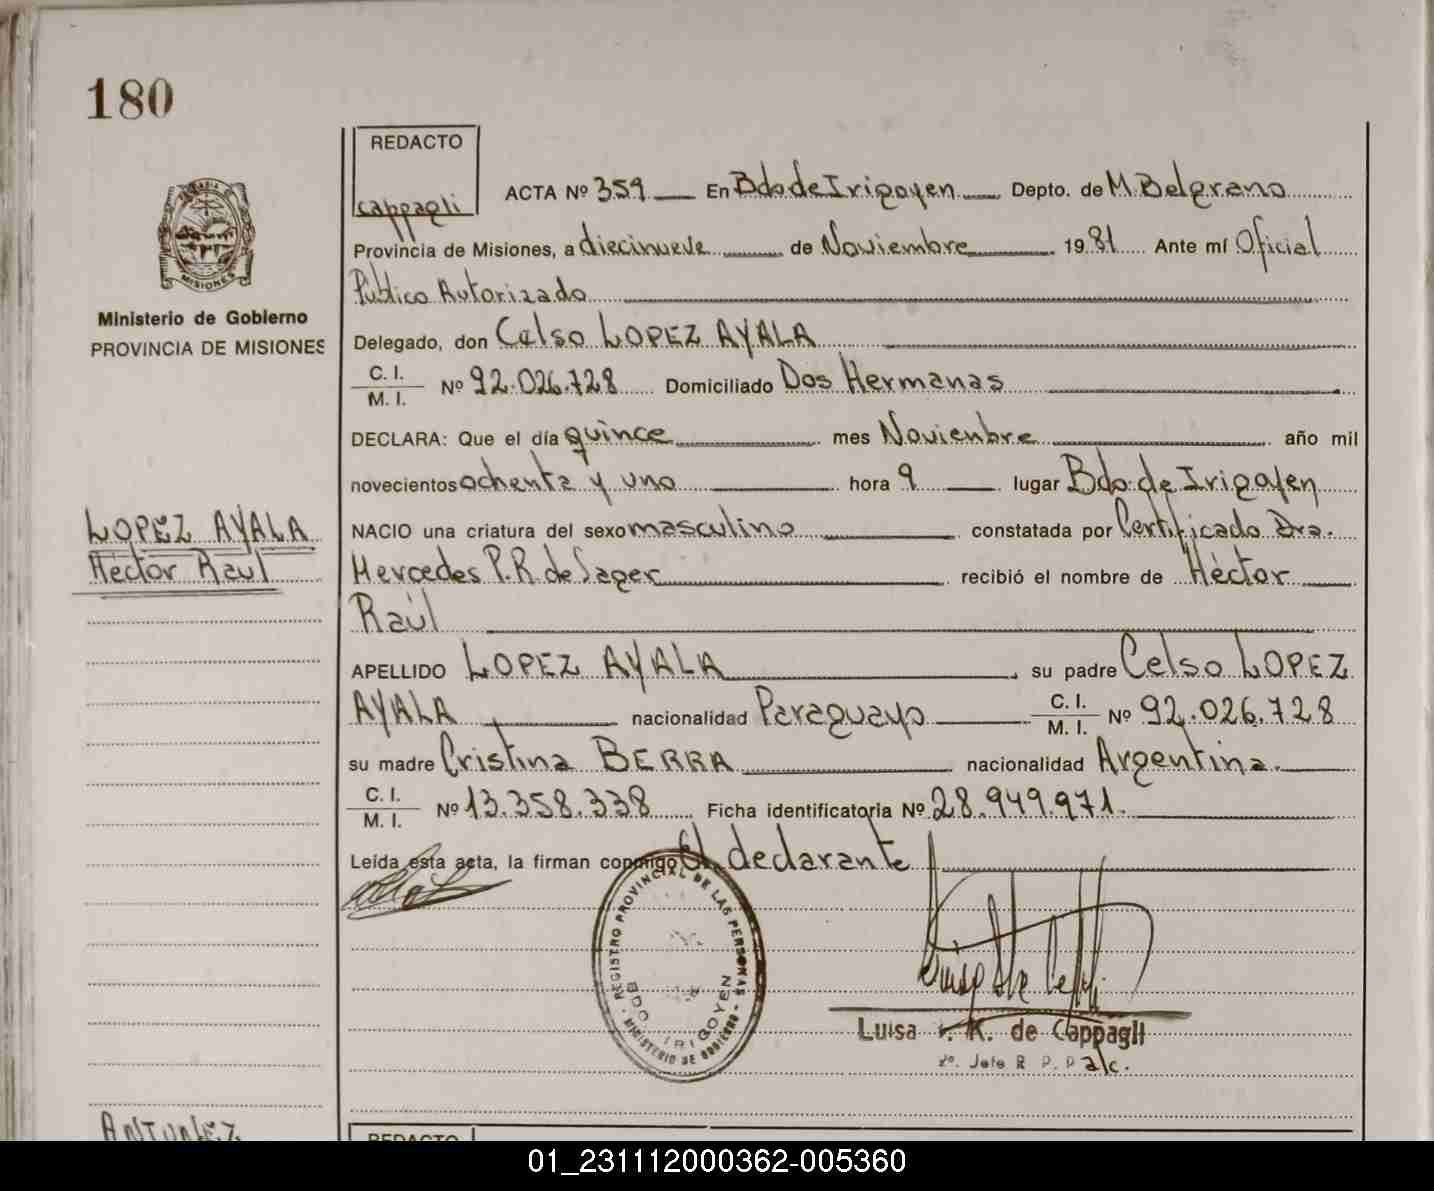 180
REDACTO
cappagli
ACTA Nº 359 En Bdo de Irigoyen Depto. de M. Belgrano
Provincia de Misiones, a diecinueve de Noviembre 1981 Ante mí Oficial
Público Autorizado
MISIONES
Ministerio de Gobierno
PROVINCIA DE MISIONES
Delegado, don Celso LOPEZ AYALA
C. I.
M. I. Nº 92.026.728 Domiciliado Dos Hermanas
DECLARA: Que el día quince mes Noviembre año mil
novecientos ochenta y uno hora 9 lugar Bdo. de Irigoyen
LOPEZ AYALA
Héctor Raúl
NACIO una criatura del sexo masculino constatada por Certificado Dra.
Mercedes P.R. de Sager recibió el nombre de Héctor
Raúl
APELLIDO LOPEZ AYALA, su padre Celso LOPEZ
AYALA, nacionalidad Paraguayo C. I.
M. I. Nº 92.026.728
su madre Cristina BERRA nacionalidad Argentina.
C. I.
M. I. Nº 13.358.338 Ficha identificatoria Nº 28.949.971.
Leída esta acta, la firman conmigo El declarante
REGISTRO PROVINCIAL DE LAS PERSONAS
BDO. IRIGOYEN
MINISTERIO DE GOBIERNO
Luisa K. de Cappagli
2º. Jefe R. P. P a/c.
ANTUNEZ
REDACTO
01_231112000362-005360